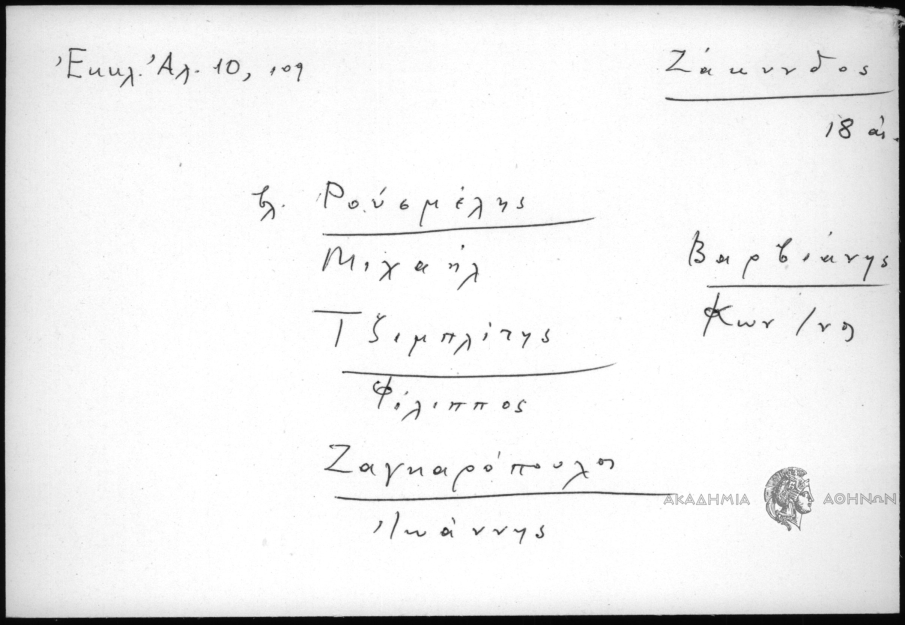 Ἐκκλ. Ἀλ. 10, 109
Ζάκυνθος
18 αἰ.
βλ. Ρούσμέλης
Μιχαήλ
Βαρβιάνης
Κων/νος
Τζιμπλίτης
Φίλιππος
Ζαγκαρόπουλος
Ἰωάννης
ΑΚΑΔΗΜΙΑ ΑΘΗΝΩΝ